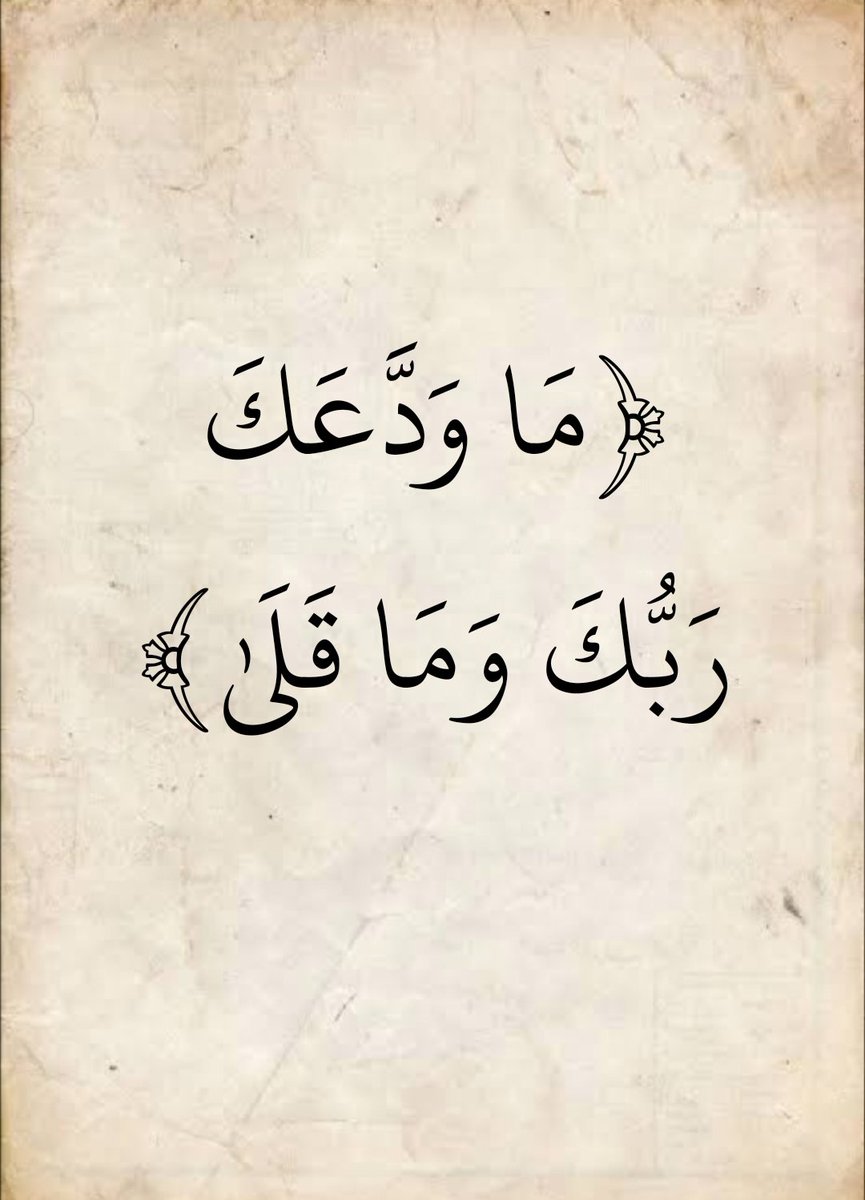 ﴿ مَا وَدَّعَكَ
رَبُّكَ وَمَا قَلَىٰ ﴾